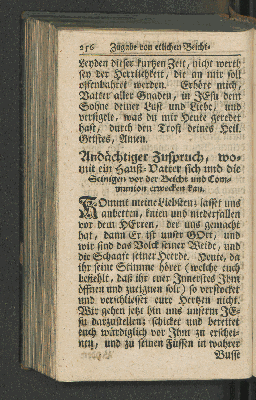 256 Zugabe von etlichen Beicht-
Leyden dieser kurtzen Zeit, nicht werth
sey der Herrlichkeit, die an mir soll
offenbahret werden. Erhöre mich,
Vatter aller Gnaden, in JEsu dem
Sohne deiner Lust und Liebe, und
versigele, was du mir Heute geredet
hast, durch den Trost deines Heil.
Geistes, Amen.
Andächtiger Zuspruch, wo-
mit ein Hauß-Vatter sich und die
Seinigen vor der Beicht und Com-
munion erwecken kan.
Kommt meine Liebsten: lasset uns
anbetten, knien und niederfallen
vor dem HErren, der uns gemacht
hat, dann Er ist unser GOtt, und
wir sind das Volck seiner Weide, und
die Schaafe seiner Heerde. Heute, da
ihr seine Stimme höret (welche euch
befiehlt, daß ihr euer Innerstes Ihm
öffnen und zueignen solt) so verstocket
und verschliesset eure Hertzen nicht.
Wir gehen jetzt hin uns unserm JE-
su darzustellen: schicket und bereitet
euch würdiglich vor Ihm zu erschei-
nen, und zu seinen Füssen in wahrer
Busse